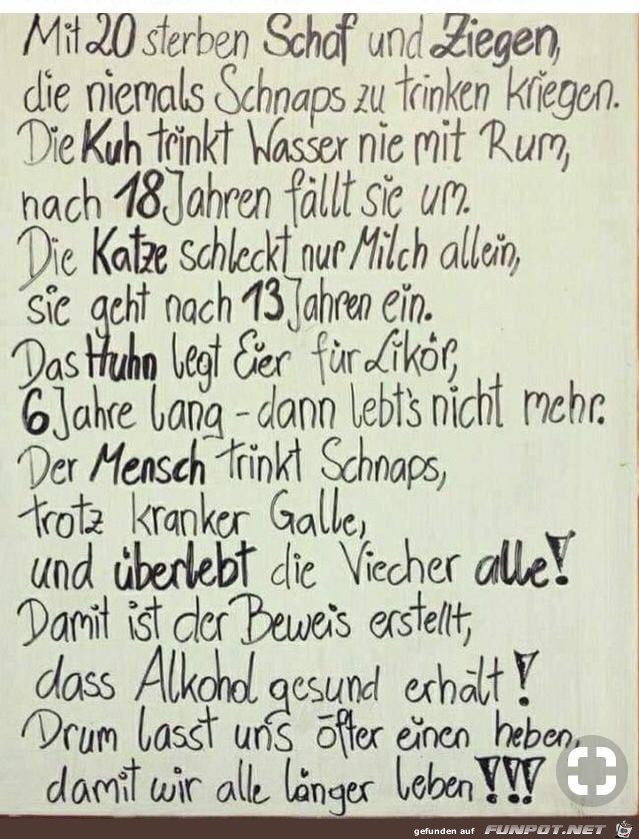 Mit 20 sterben Schaf und Ziegen,
die niemals Schnaps zu trinken kriegen.
Die Kuh trinkt Wasser nie mit Rum,
nach 18 Jahren fällt sie um.
Die Katze schleckt nur Milch allein,
sie geht nach 13 Jahren ein.
Das Huhn legt Eier für Likör,
6 Jahre lang - dann lebt's nicht mehr.
Der Mensch trinkt Schnaps,
trotz kranker Galle,
und überlebt die Viecher alle!
Damit ist der Beweis erstellt,
dass Alkohol gesund erhält!
Drum lasst uns öfter einen heben,
damit wir alle länger leben!!!
gefunden auf FUNPOT.NET